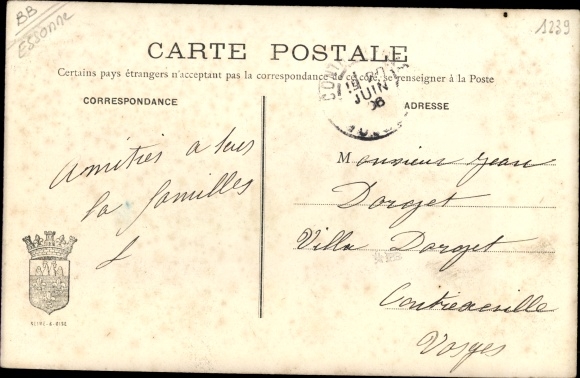 BB
ESSONNE
1239
CARTE POSTALE
Certains pays étrangers n'acceptant pas la correspondance de ce côté, se renseigner à la Poste
CORRESPONDANCE
ADRESSE
JUIN
Amitiés a tous
la familles
Monsieur Jean
Dorget
Villa Dorget
Contrexeville
Vosges
SEINE-&-OISE